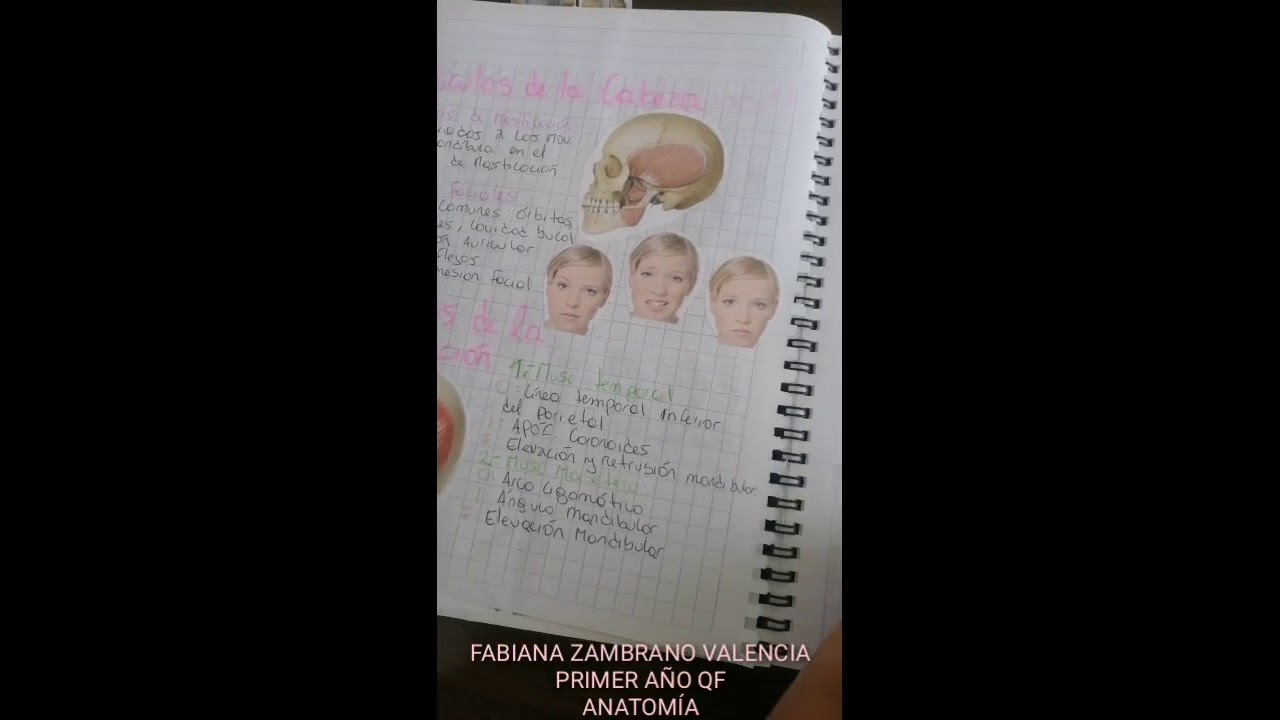 sculos de la Cabeza
os de Masticación
a los Mov.
andíbula en el
de Masticación
Faciales
Comunes: órbitas,
es, Cavidad bucal
ón Auricular
flejos
resion Facial
s de la
ción
1.- Musc temporal
O: Línea temporal Inferior
del parietal
I: APOF. Coronoides
Elevación y retrusión mandibular
2.- Musc Masetero
O: Arco Cigomático
I: Ángulo mandibular
Elevación Mandibular
FABIANA ZAMBRANO VALENCIA
PRIMER AÑO QF
ANATOMÍA